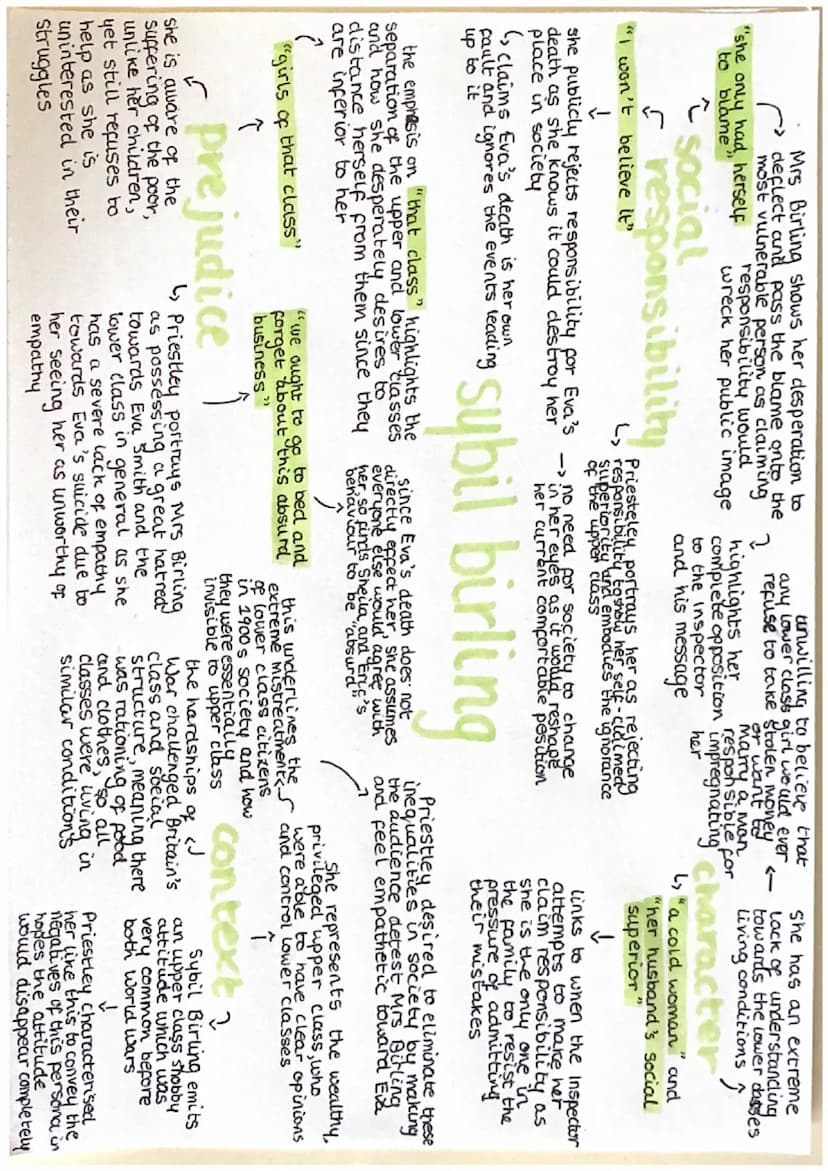 sybil birling
social
responsibility
"she only had herself
to blame"
Mrs Birling shows her desperation to
deflect and pass the blame onto the
most vulnerable person as claiming
responsibility would
wreck her public image
"I won't believe it"
she publicly rejects responsibility for Eva's
death as she knows it could destroy her
place in society
claims Eva's death is her own
fault and ignores the events leading
up to it
Priesteley portrays her as rejecting
responsibility to show her self-claimed
superiority and embodies the ignorance
of the upper class
no need for society to change
in her eyes as it would reshape
her current comfortable position
character
"a cold woman" and
"her husband's social
superior"
she has an extreme
lack of understanding
towards the lower classes
living conditions
unwilling to believe that
any lower class girl would ever
refuse to take stolen money
or want to
marry a man
responsible for
impregnating
her
highlights her
complete opposition
to the inspector
and his message
links to when the Inspector
attempts to make her
claim responsibility as
she is the only one in
the family to resist the
pressure of admitting
their mistakes
prejudice
"girls of that class"
the emphasis on "that class" highlights the
separation of the upper and lower classes
and how she desperately desires to
distance herself from them since they
are inferior to her
she is aware of the
suffering of the poor,
unlike her children,
yet still refuses to
help as she is
uninterested in their
struggles
Priestley portrays Mrs Birling
as possessing a great hatred
towards Eva Smith and the
lower class in general as she
has a severe lack of empathy
towards Eva's suicide due to
her seeing her as unworthy of
empathy
"we ought to go to bed and
forget about this absurd
business"
since Eva's death does not
directly effect her, she assumes
everyone else would agree with
her, so finds Sheila and Eric's
behaviour to be "absurd"
Priestley desired to eliminate these
inequalities in society by making
the audience detest Mrs Birling
and feel empathetic toward Eva
context
She represents the wealthy,
privileged upper class, who
were able to have clear opinions
and control lower classes
this underlines the
extreme mistreatment
of lower class citizens
in 1900's society and how
they were essentially
invisible to upper class
the hardships of
War challenged Britain's
class and social
structure, meaning there
was rationing of food
and clothes, so all
classes were living in
similar conditions
Sybil Birling emits
an upper class snobby
attitude which was
very common before
both world wars
Priestley characterised
her like this to convey the
negatives of this persona, in
hopes the attitude
would disappear completely